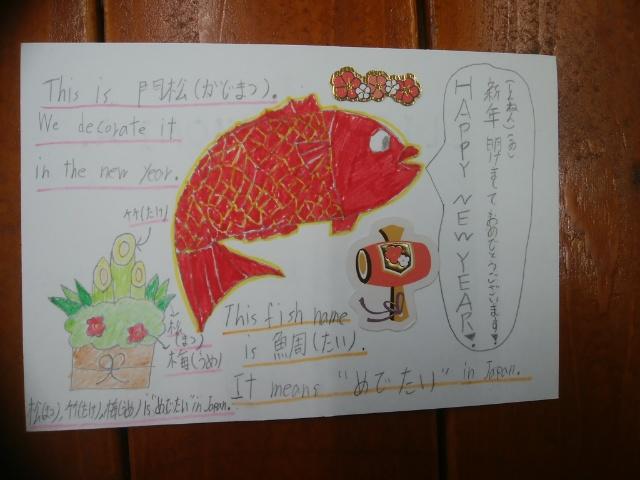 This is 門松(かどまつ).
We decorate it
in the new year.
(しんねん)(あ)
新年 明けましておめでとうございます♥
HAPPY NEW YEAR♥
竹(たけ)
松(まつ)
梅(うめ)
This fish name
is 鯛(たい).
It means "めでたい" in Japan.
松(まつ),竹(たけ),梅(うめ) is "めでたい" in Japan.